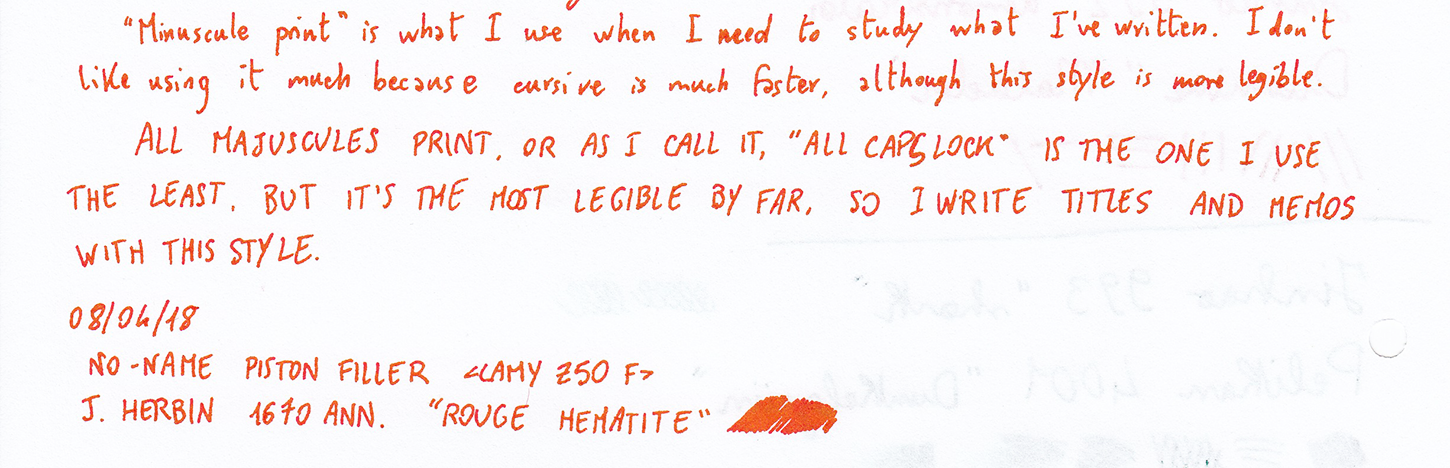 "Minuscule print" is what I use when I need to study what I've written. I don't
like using it much because cursive is much faster, although this style is more legible.
ALL MAJUSCULES PRINT, OR AS I CALL IT, "ALL CAPS LOCK" IS THE ONE I USE
THE LEAST, BUT IT'S THE MOST LEGIBLE BY FAR, SO I WRITE TITLES AND MEMOS
WITH THIS STYLE.
08/04/18
NO-NAME PISTON FILLER <LAMY Z50 F>
J. HERBIN 1670 ANN. "ROUGE HEMATITE"
Jinhao 993 "shark
Pelikan 400